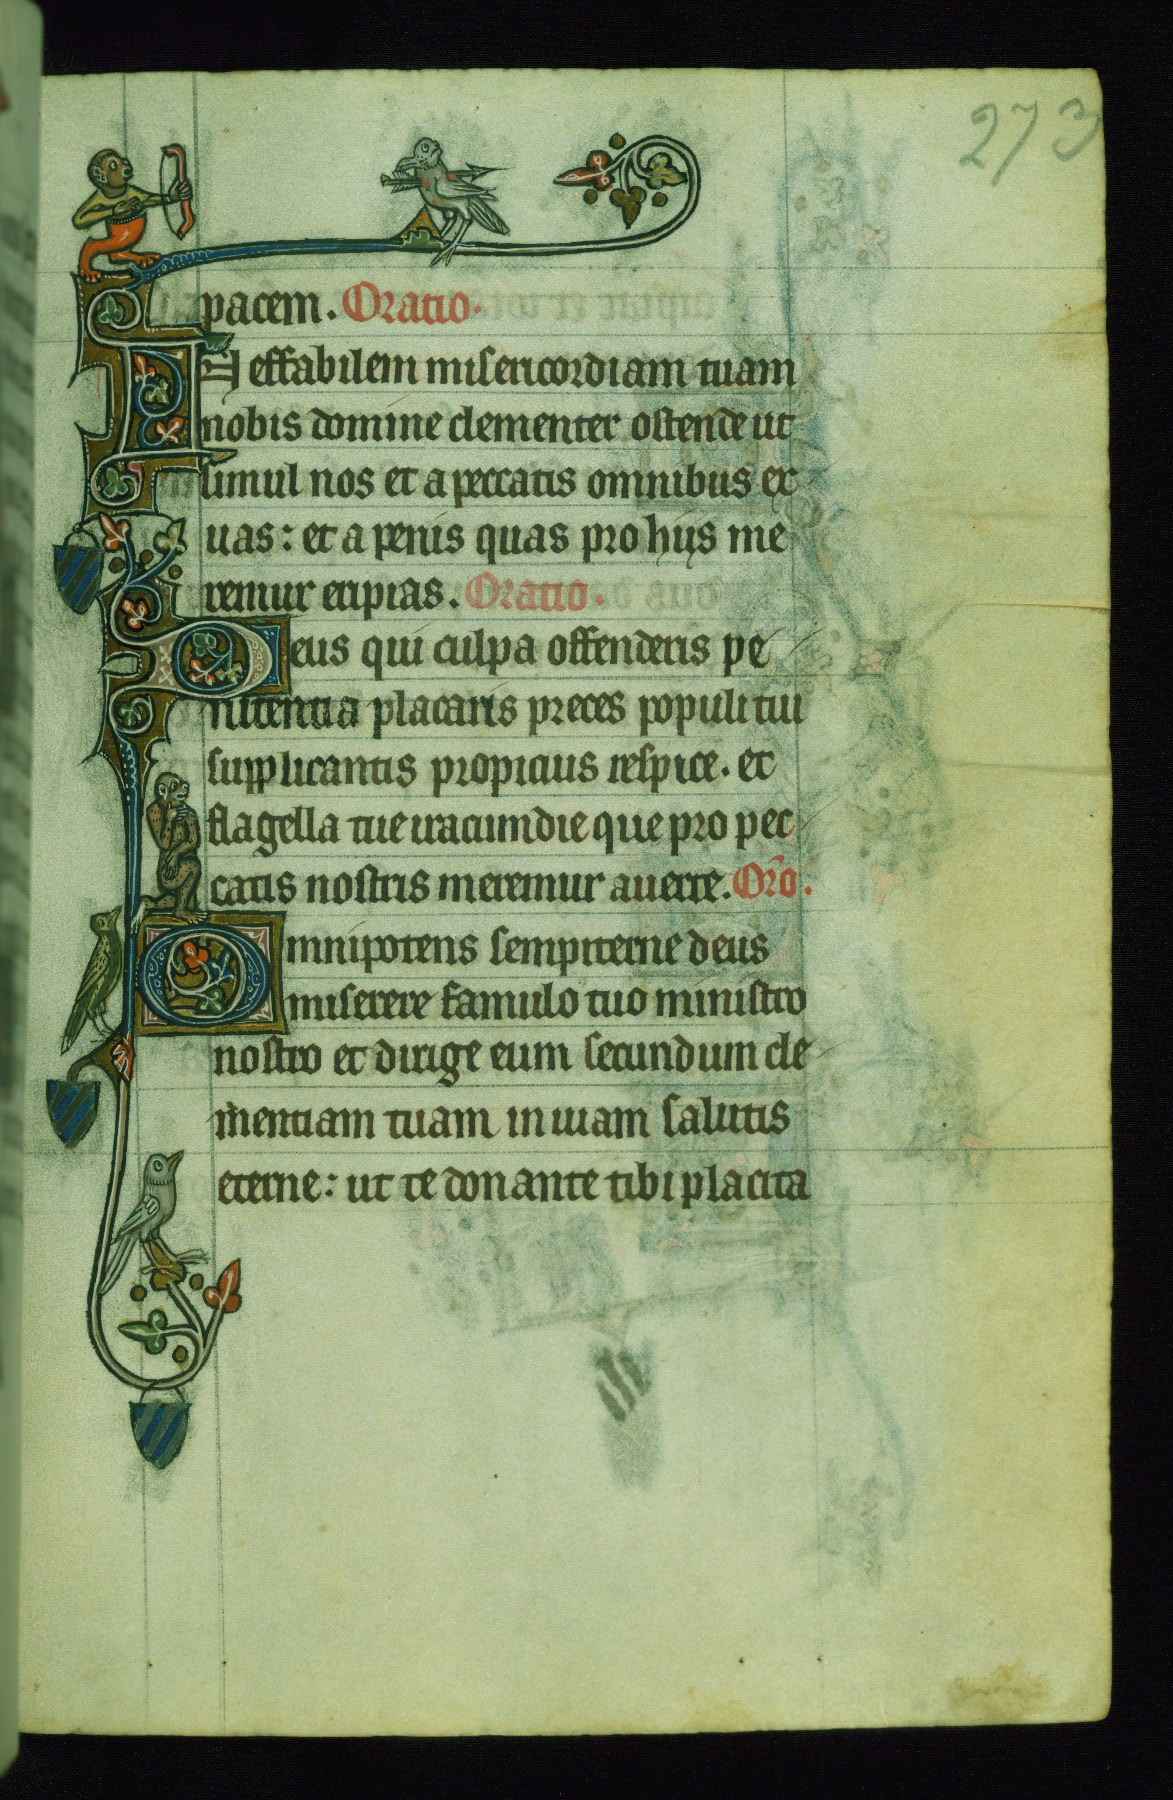 273
pacem. Oratio.
INeffabilem misericordiam tuam
nobis domine clementer ostende ut
simul nos et a peccatis omnibus ex
uas: et a penis quas pro hijs me
remur eripias. Oratio.
Deus qui culpa offenderis pe
nitentia placaris preces populi tui
supplicantis propicius respice. et
flagella tue iracundie que pro pec
catis nostris meremur auerte. Oro.
Omnipotens sempiterne deus
miserere famulo tuo ministro
nostro et dirige eum secundum cle
mentiam tuam in uiam salutis
eterne: ut te donante tibi placita